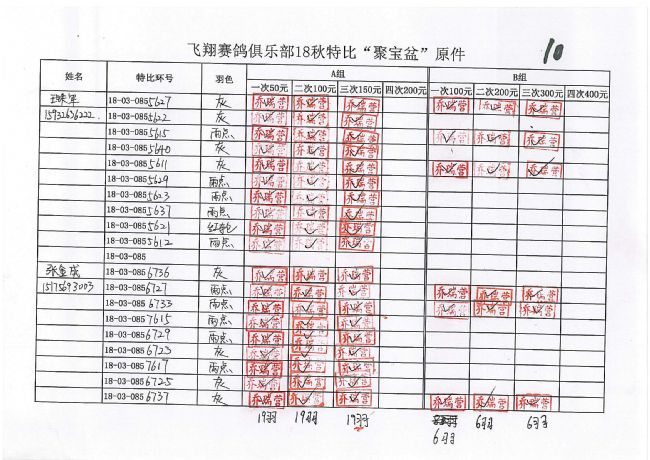 飞翔赛鸽俱乐部18秋特比“聚宝盆”原件 10
姓名 特比环号 羽色 A组 B组
一次50元 二次100元 三次150元 四次200元 一次100元 二次200元 三次300元 四次400元
18-03-0855627 灰 乔瑞营 乔瑞营 乔瑞营 乔瑞营 乔瑞营 乔瑞营
18-03-0855622 灰 乔瑞营 乔瑞营 乔瑞营
18-03-0855615 雨点 乔瑞营 乔瑞营 乔瑞营 乔瑞营 乔瑞营 乔瑞营
18-03-0855640 灰 乔瑞营 乔瑞营 乔瑞营
18-03-0855611 灰 乔瑞营 乔瑞营 乔瑞营 乔瑞营 乔瑞营 乔瑞营
18-03-0855629 雨点 乔瑞营 乔瑞营 乔瑞营
18-03-0855623 雨点 乔瑞营 乔瑞营 乔瑞营
18-03-0855637 雨点 乔瑞营 乔瑞营 乔瑞营
18-03-0855621 乔瑞营 乔瑞营 乔瑞营
18-03-0855612 雨点 乔瑞营 乔瑞营 乔瑞营
18-03-085
张金成 18-03-0856736 灰 乔瑞营 乔瑞营 乔瑞营
18-03-0856727 雨点 乔瑞营 乔瑞营 乔瑞营 乔瑞营 乔瑞营 乔瑞营
18-03-0856733 雨点 乔瑞营 乔瑞营 乔瑞营 乔瑞营 乔瑞营 乔瑞营
18-03-0857615 雨点 乔瑞营 乔瑞营 乔瑞营
18-03-0856729 雨点 乔瑞营 乔瑞营 乔瑞营
18-03-0856723 灰 乔瑞营 乔瑞营 乔瑞营
18-03-0857617 雨点 乔瑞营 乔瑞营 乔瑞营
18-03-0856725 灰 乔瑞营 乔瑞营 乔瑞营
18-03-0856737 灰 乔瑞营 乔瑞营 乔瑞营 乔瑞营 乔瑞营 乔瑞营
19羽 19羽 19羽 6羽 6羽
6羽